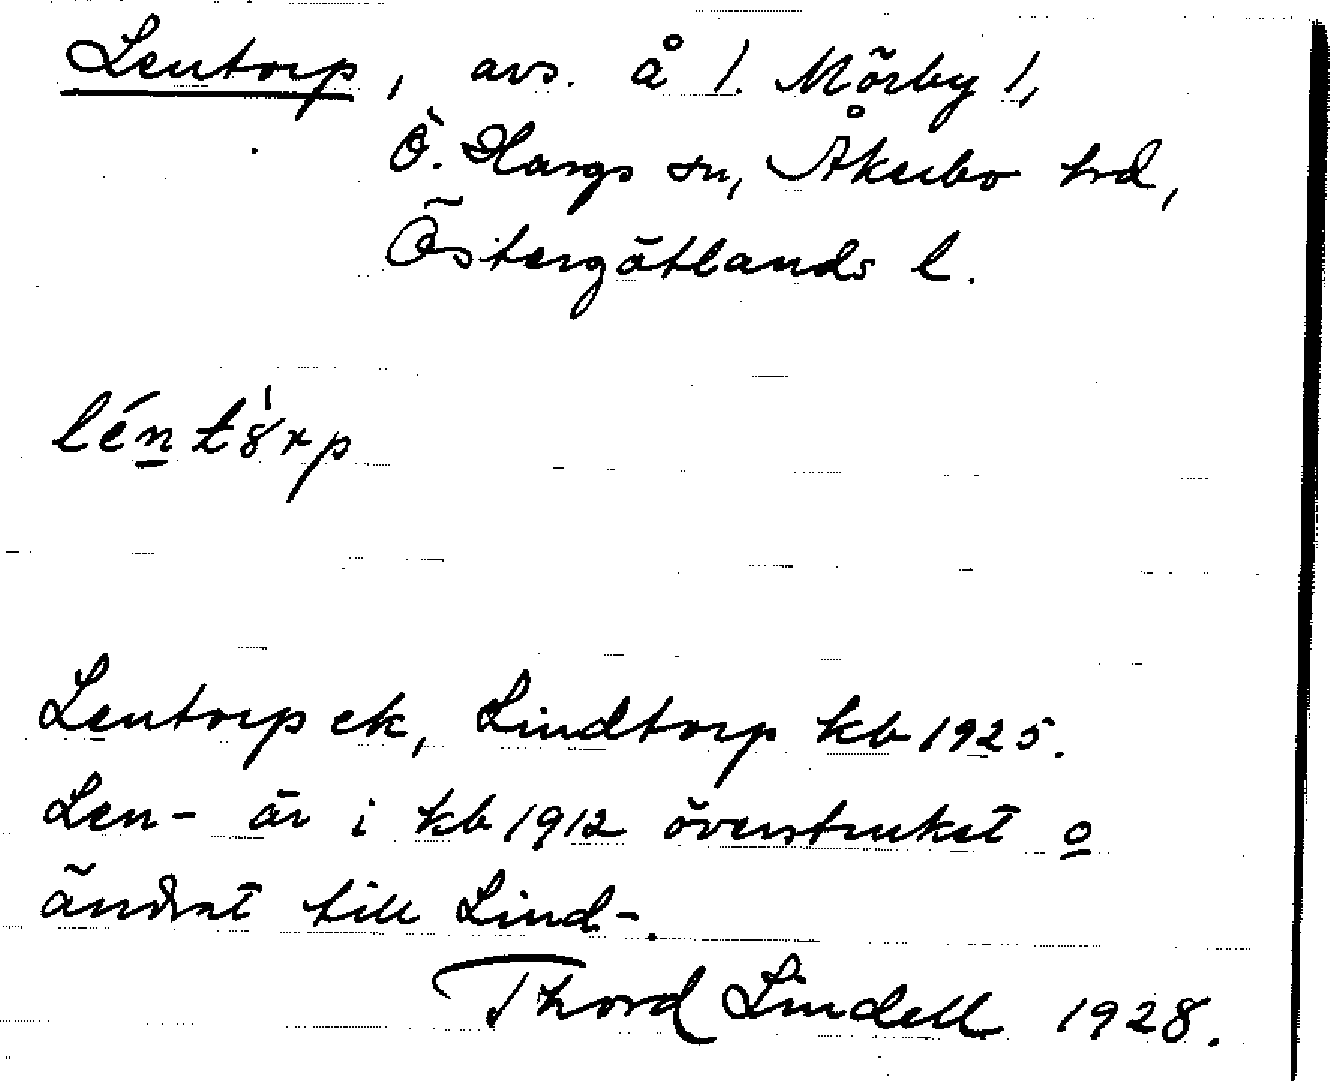 Lentorp, avs. å 1. Mörby 1,
Ö. Hargs sn, Åkerbo hrd,
Östergötlands l.
Lentorp ek, Lindtorp kb 1925.
Len- är i kb 1912 överstruket o
ändrat till Lind-.
Thord Lindell 1928.